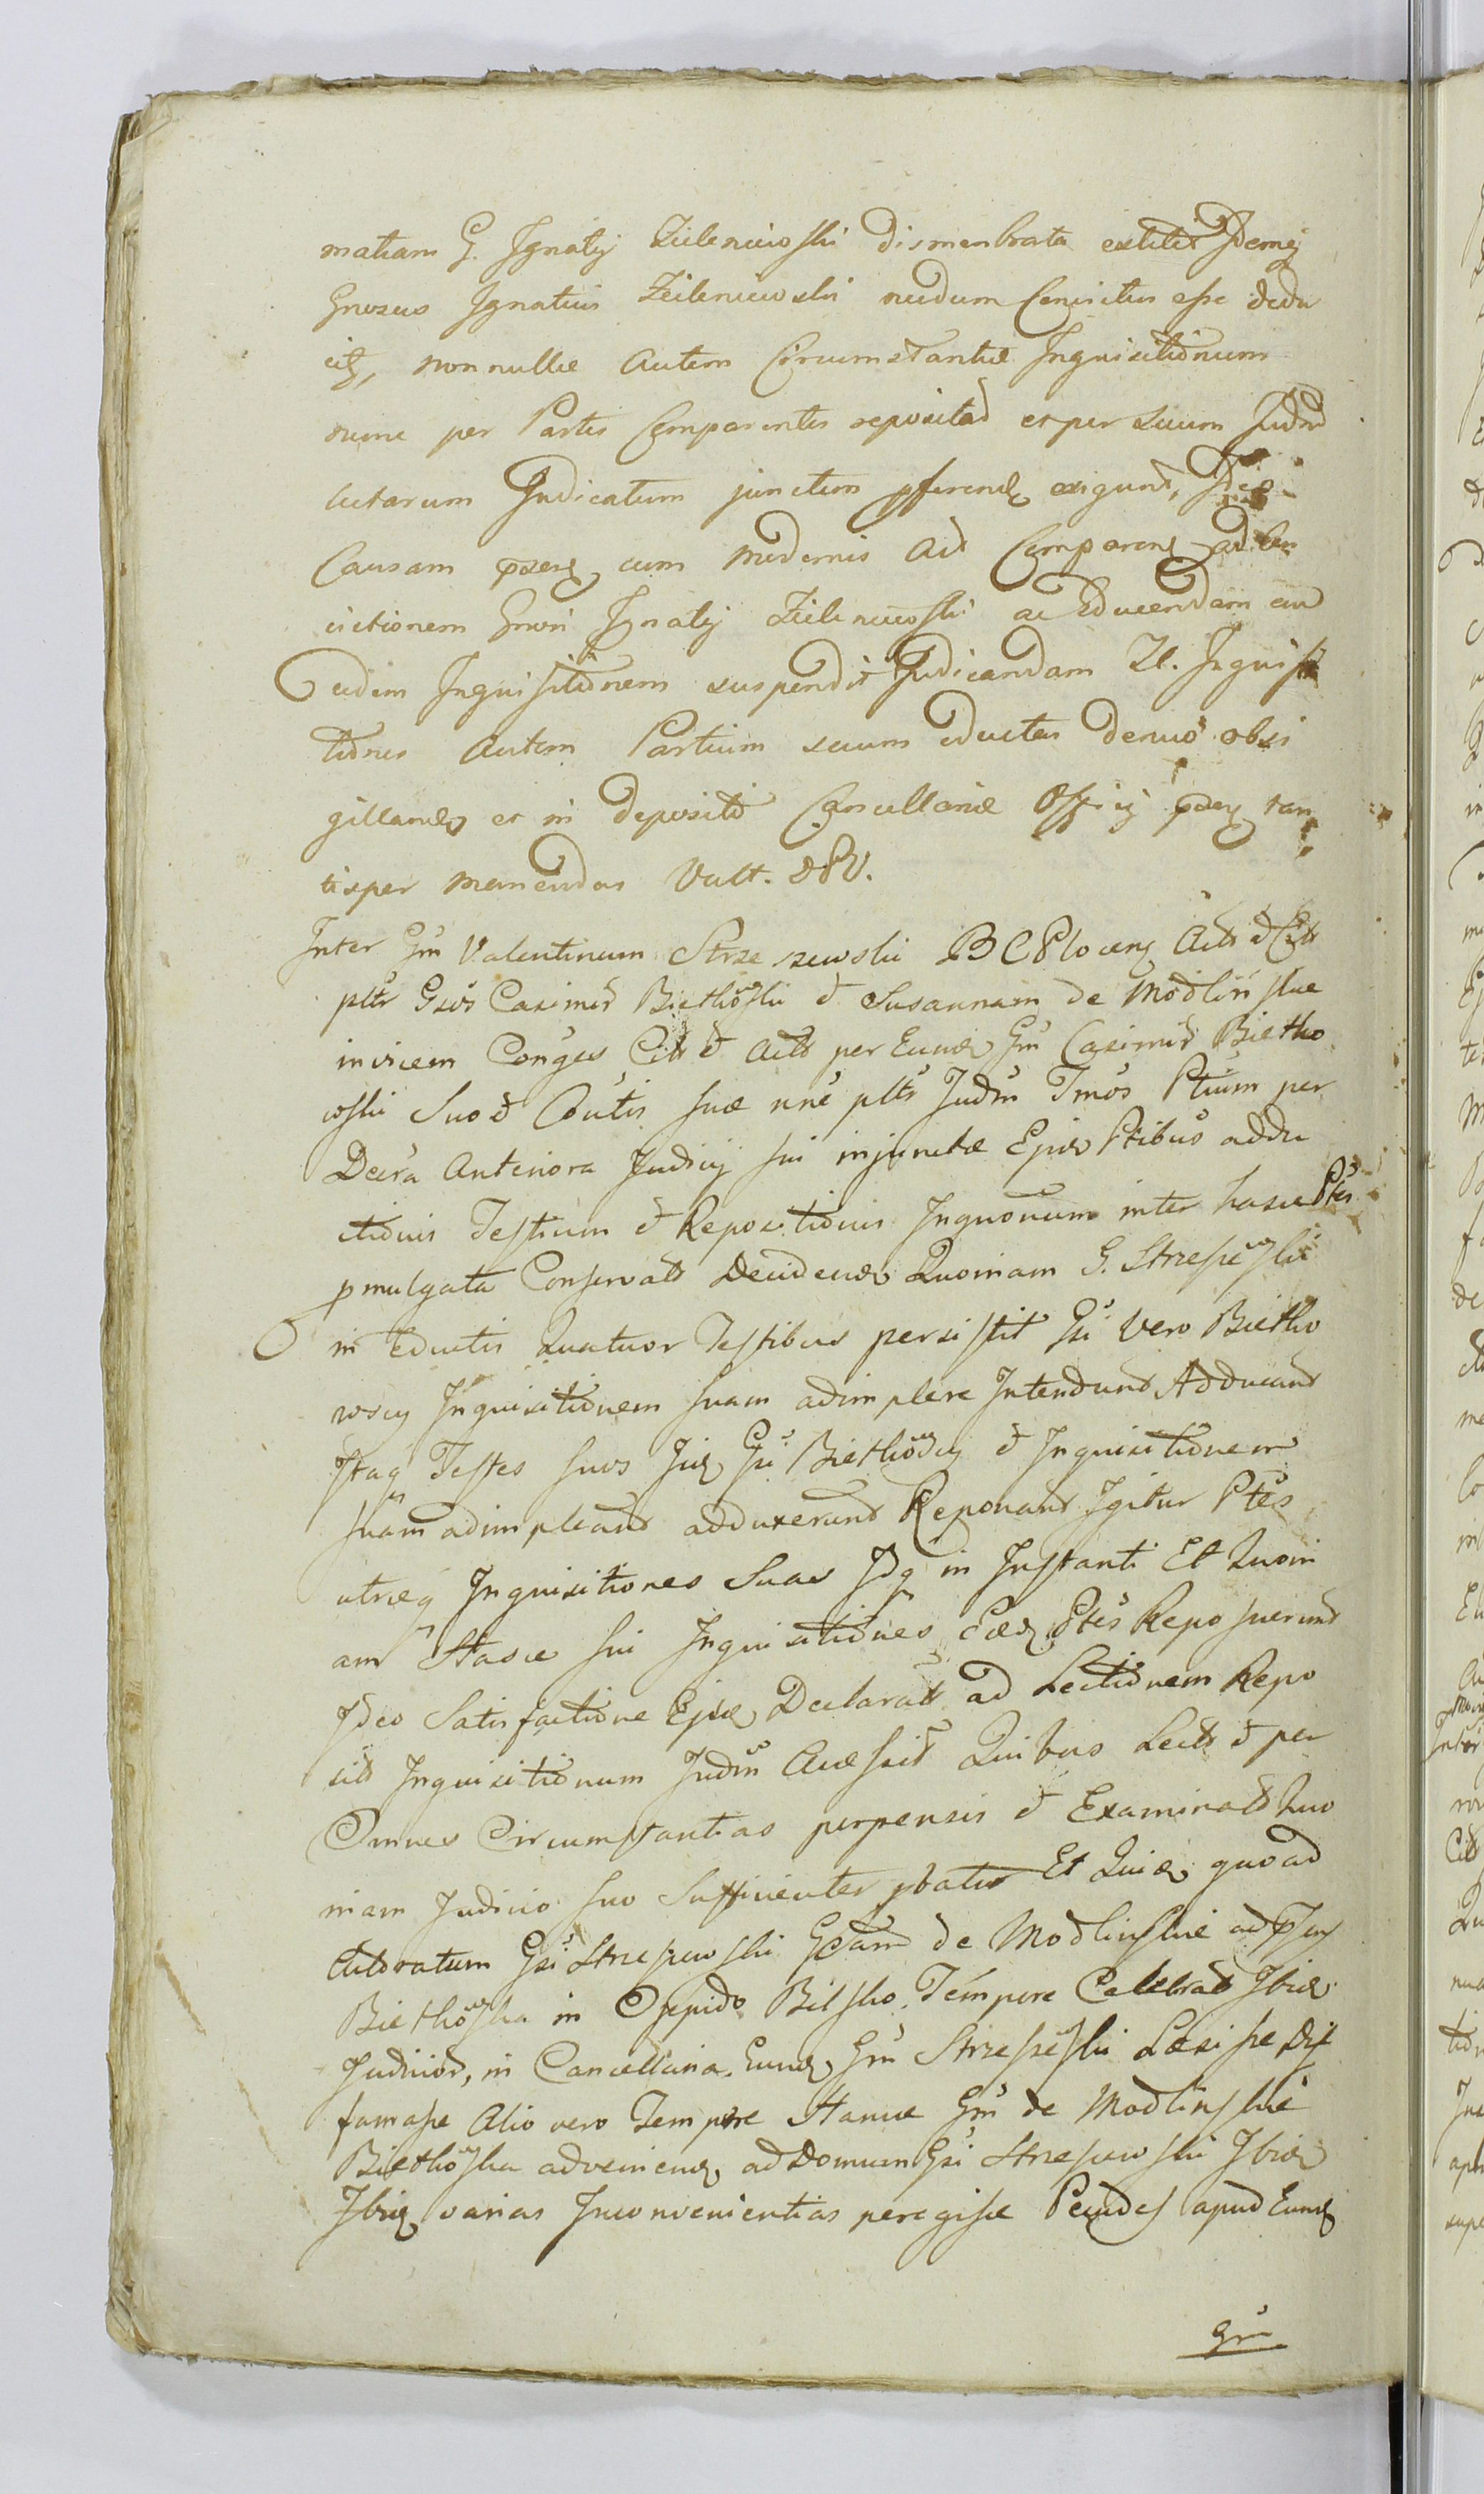 matiam G. Ignatij Zieleniewski dismenbrata extitit Idemq
Gnrosus Ignatius Zieleniewski nudum Convictus esse dedu
citq, non nullæ autem Circumstantiæ Inquisitionum
nunc per Partes Comparentes reposita et per suum
lectarum Judicatum junctim pferend exigunt, Ideo
Causam pnsens cum modernis Act Comparens ad con
victionem Gnrosi Ignatij Zieleniewski ac educendam eun
eidem Inquisitionem suspendit Judicandam Zl. Inquisi
tiones autem Partium secum eductas denuo obsi
gillandas et in deposito Cancellariæ Officij pnsens tan
tisper manendas Vult. DPV.
Inter Gm Valentinum Strzeszewski BC Plocens Act & Citt
pltr Gsos Casimir Biethowski & Susannam de Modlińskie
invicem Conges Citt & Actt per Eund Gm Casimir Bietko
wski Suo & Coutis suæ nne pltr Judm Tmos Ptium per
Decra Anteriora Judicij sui injunctæ Ejusd Ptibus addu
ctionis Testium & Repositionis Inquonum inter hasce Ptes
pmulgata Conservatt Decidend Quoniam G. Strzeszewski
in Eductis Quatuor Testibus persistit Gsi Vero Bietko
wscy Inquisitionem suam adimplere Intendunt Adducant
Itaq Testes suos Gsi Biethowscy & Inquisitionem
suam adimpleant adduxerunt Reponant Igitur Ptes
utræq Inquisitiones Suas Idq in Instanti Et Quoni
am Hasce sui Inquisitiones Eæd Ptes Reposuerunt
Ideo Satisfactione Declaratt ad Lectionem Repo
sitt Inquisitionum Judm Accessit Quibus Lectt & per
Omnes Circumstantias perpensis & Examinatt Quo
niam Judicio suo Sufficienter pbatur Et Quid quoad
Actoratum Gsi Strzeszewski Gsam de Modlinskie ad
Biethowska in Oppido Bilsko Tempore Celebrat Ibid
Judicior, in Cancellaria Eund Gm Strzeszewski Læsisse Dif
famasse Alio vero Tempore Hancce Gm de Modlinskie
Biethowska adveniens ad Domum Gsi Strzeszewski Ibid
Ibiq varias Inconvenientias peregisse apud Eund
Gm